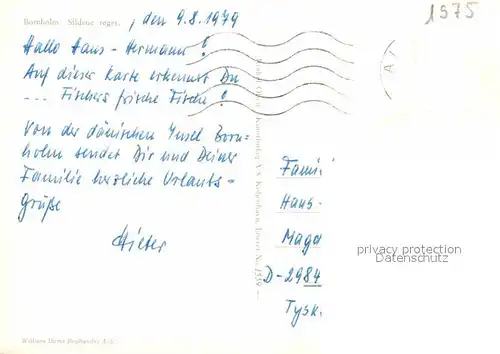 Bornholm. Sildene røges. , den 9.8.1979
1975
Hallo Hans-Hermann!
Auf dieser Karte erkennst Du
... Fischers frische Fische!
Von der dänischen Insel Born=
holm sendet Dir und Deiner
Familie herzliche Urlaubs-
grüße
Dieter
Fami
Hans-
Magd
D-2984
Tysk.
privacy protection
DATENSCHUTZ